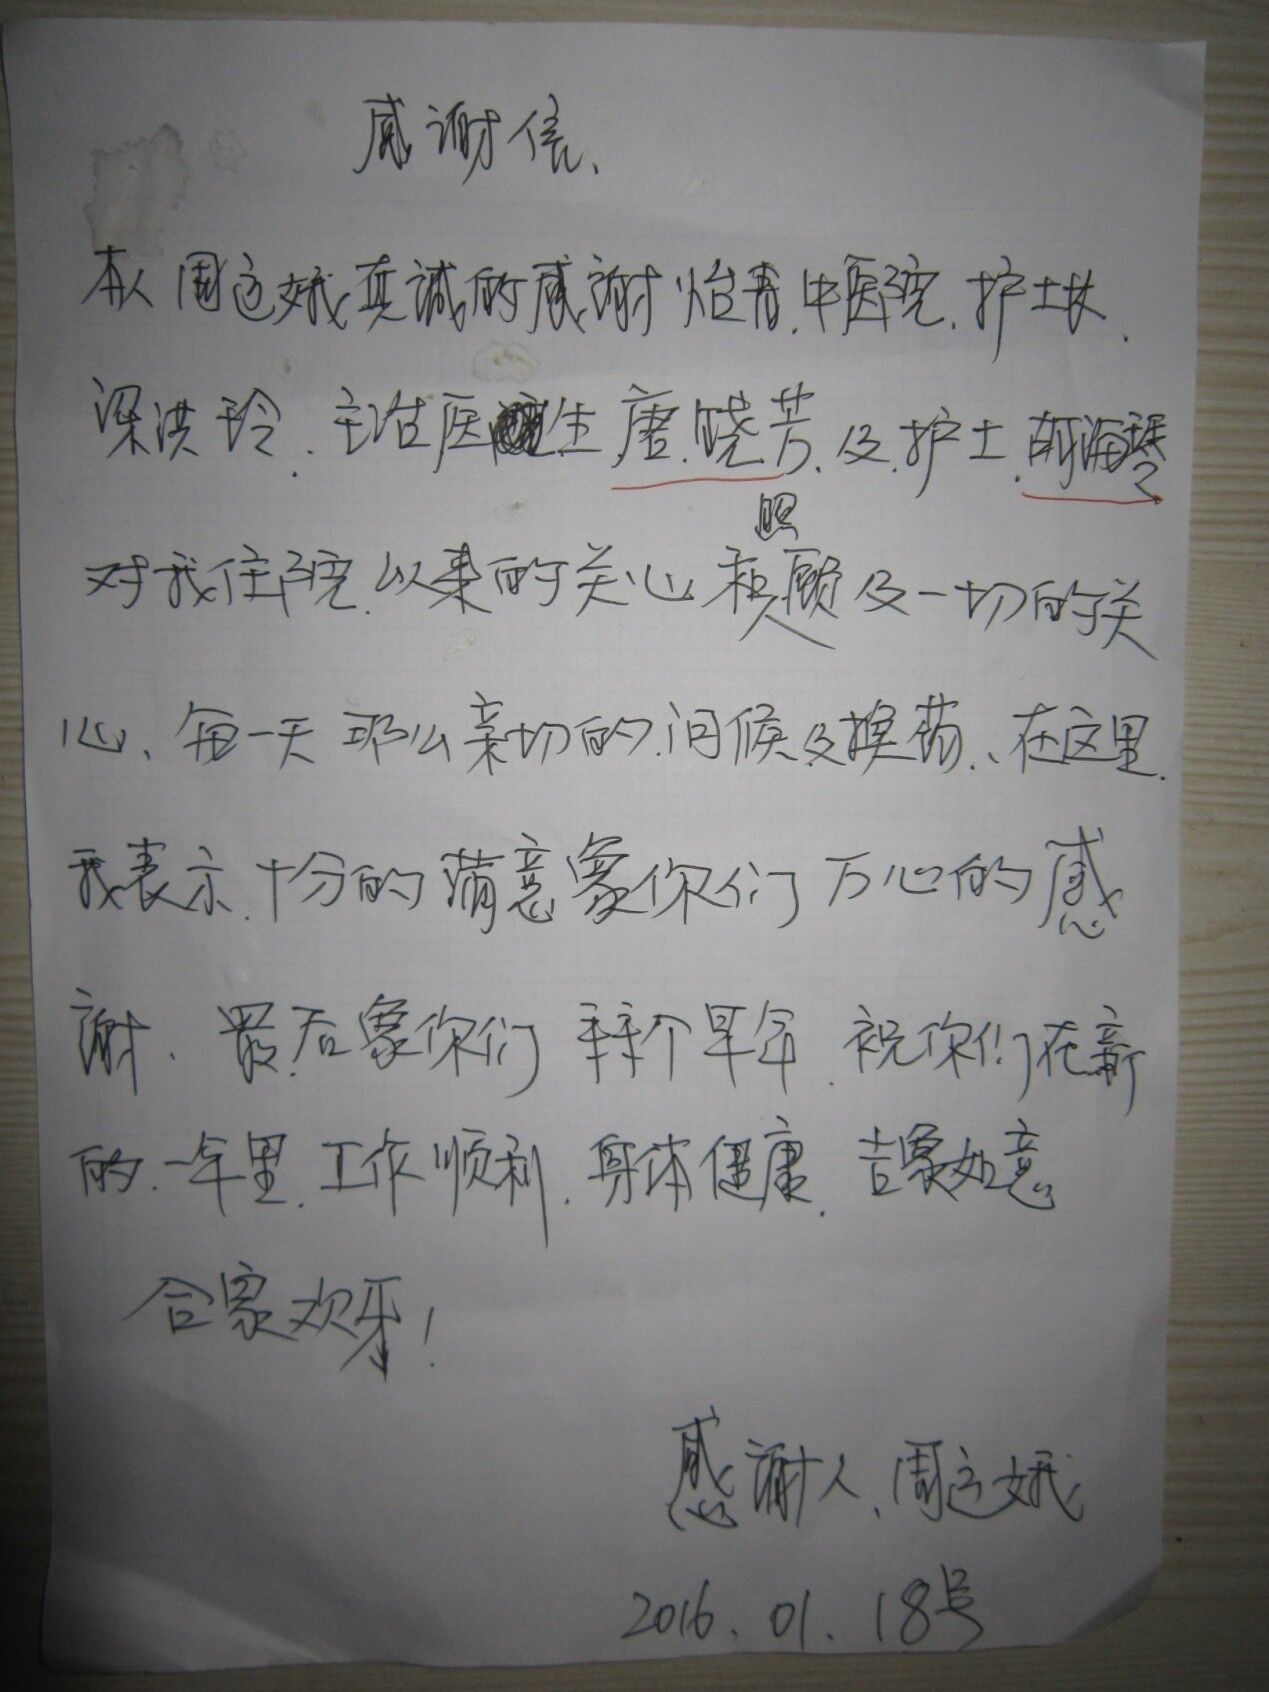 感谢信、
本人周运娥真诚的感谢怡春.中医院.护士长.
梁洪玲.主治医生唐.晓芳.及.护士.何海琴
对我住院.以来的关心和照顾及一切的关
心、每一天那么亲切的.问候及换药、在这里.
我表示.十分的满意象你们万心的感
谢.最后象你们拜个早年.祝你们在新
的.一年里.工作顺利.身体健康.吉象如意
合家欢乐!
感谢人、周运娥
2016.01.18号